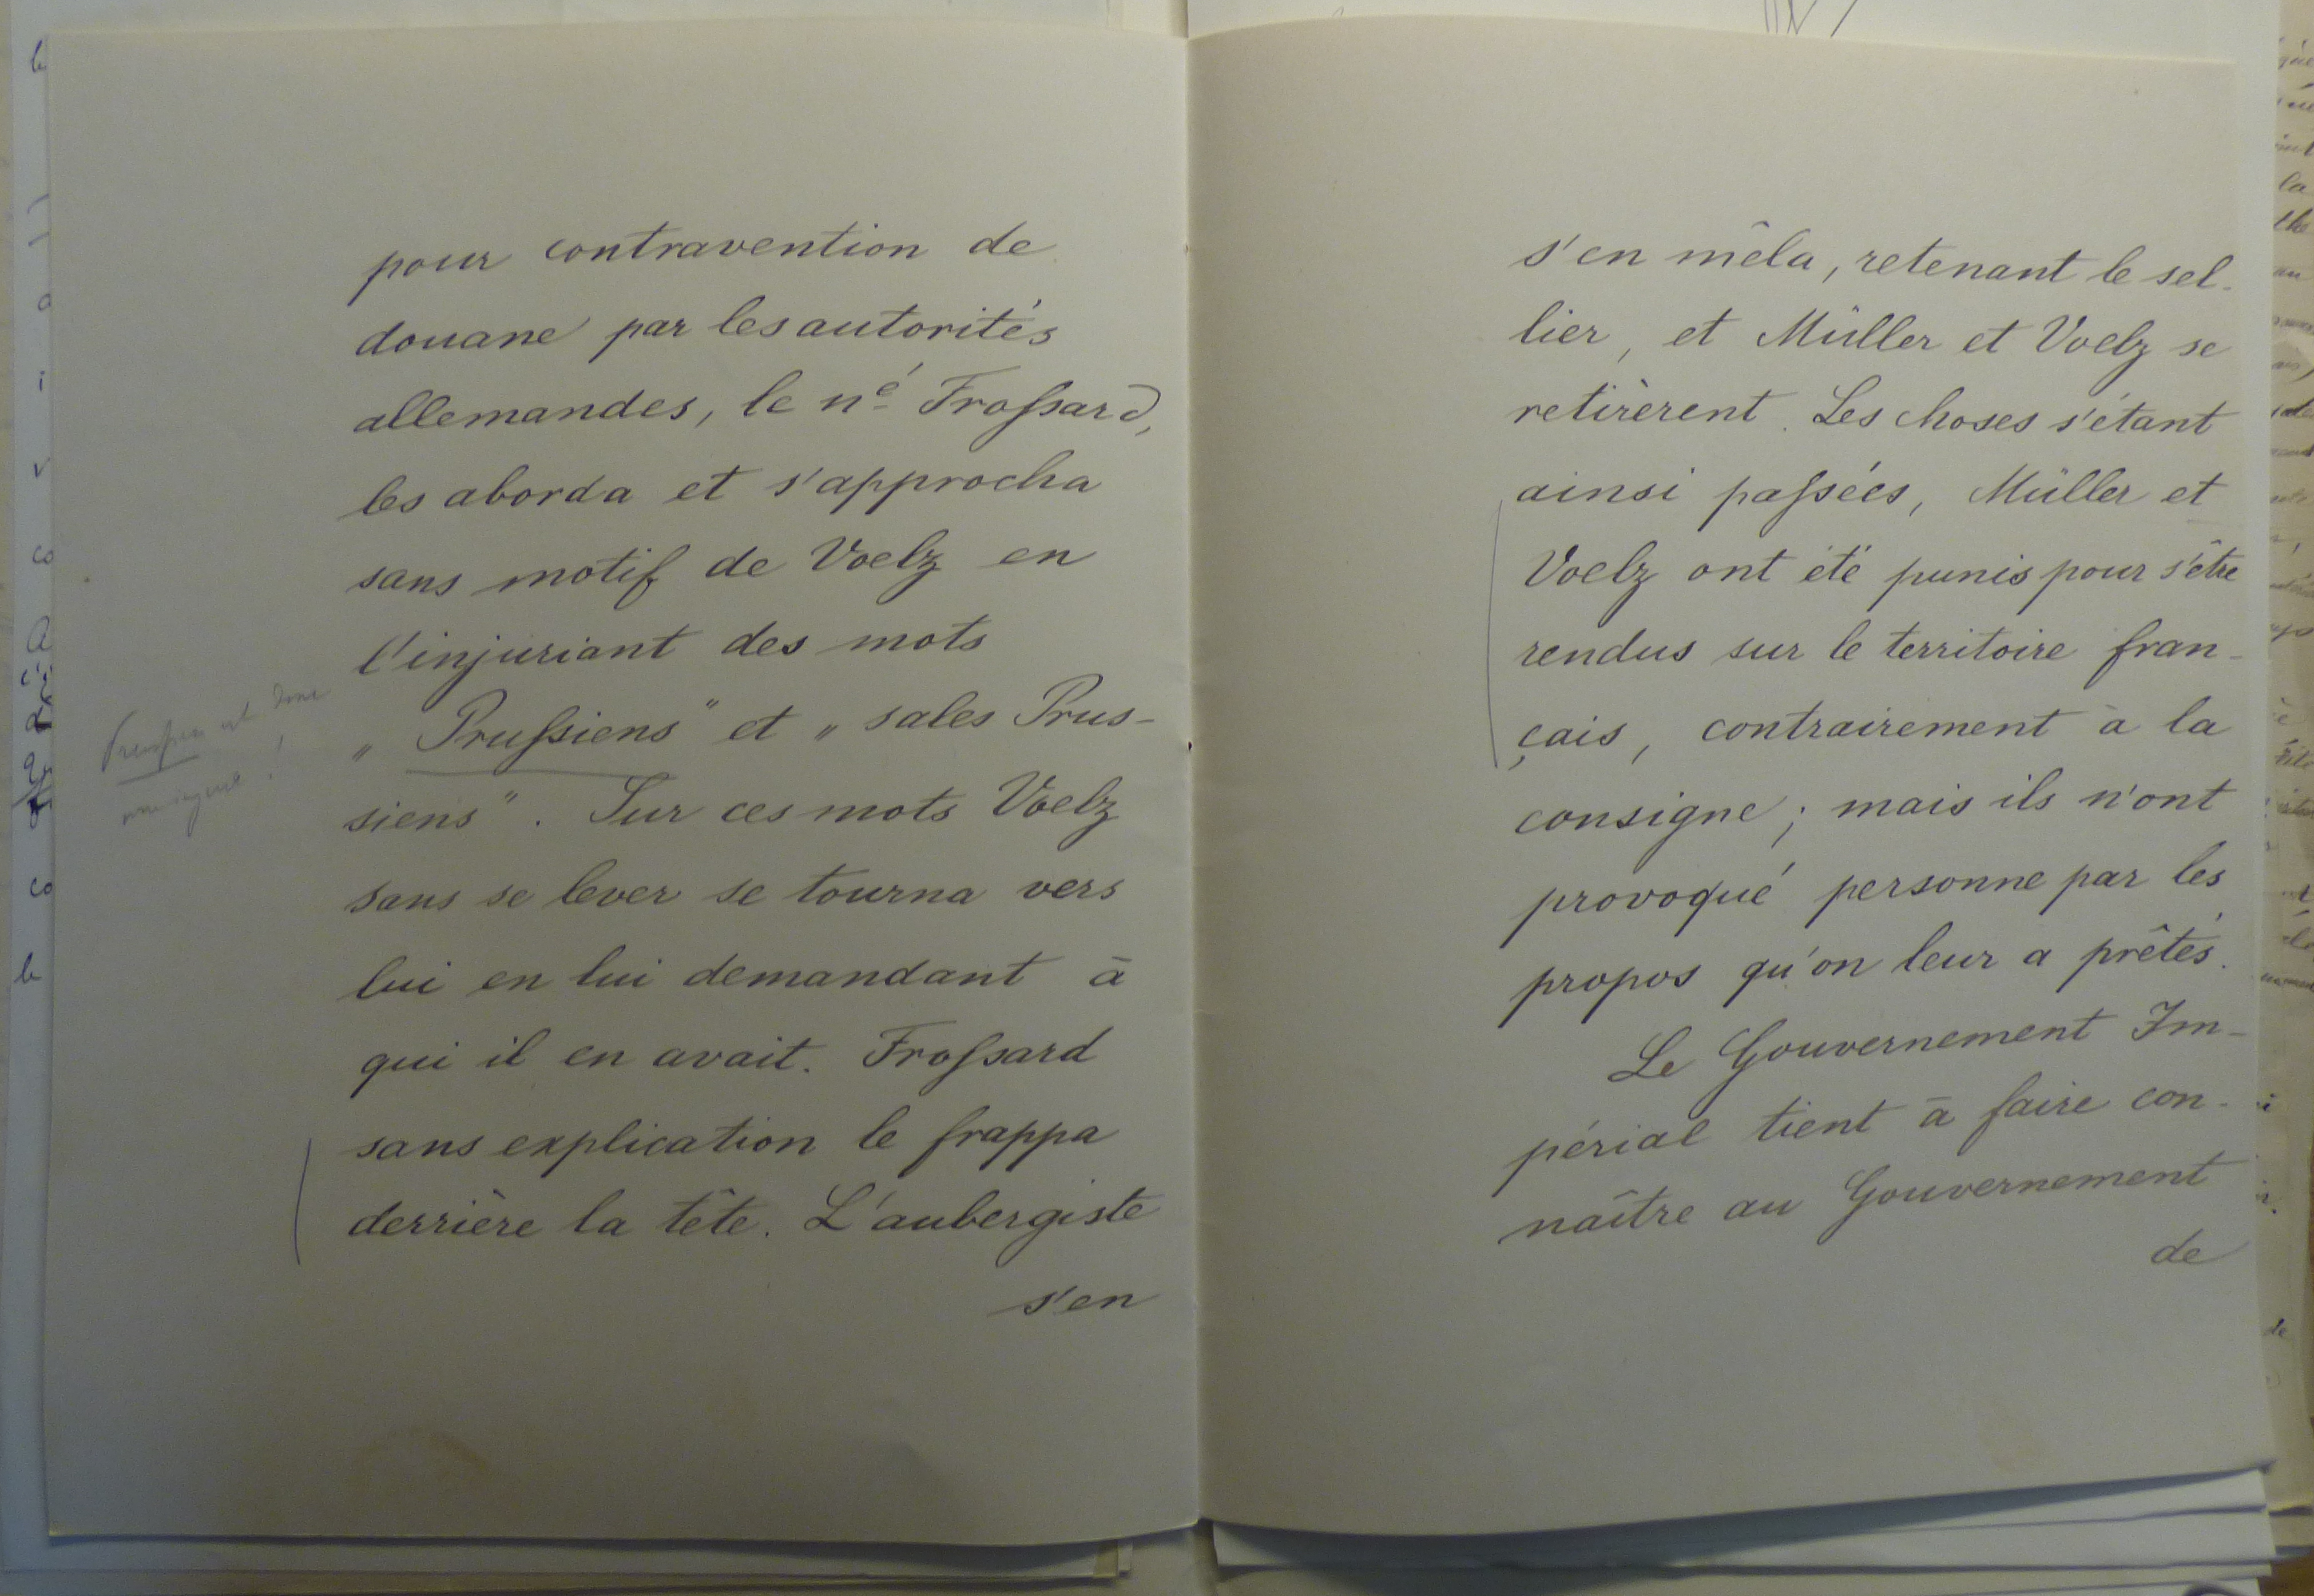 pour contravention de
douane par les autorités
allemandes, le né Froſsard,
les aborda et s'approcha
sans motif de Voelz en
l'injuriant des mots
„ Pruſsiens" et „ sales Prus-
siens". Sur ces mots Voelz
sans se lever se tourna vers
lui en lui demandant à
qui il en avait. Froſsard
sans explication le frappa
derrière la tête. L'aubergiste
s'en
est donc
!
s'en mêla, retenant le sel-
lier, et Müller et Voelz se
retirèrent. Les choses s'étant
ainsi paſsées, Müller et
Voelz ont été punis pour s'être
rendus sur le territoire fran-
çais, contrairement à la
consigne; mais ils n'ont
provoqué personne par les
propos qu'on leur a prêtés.
Le Gouvernement Im-
périal tient à faire con-
naître au Gouvernement
de